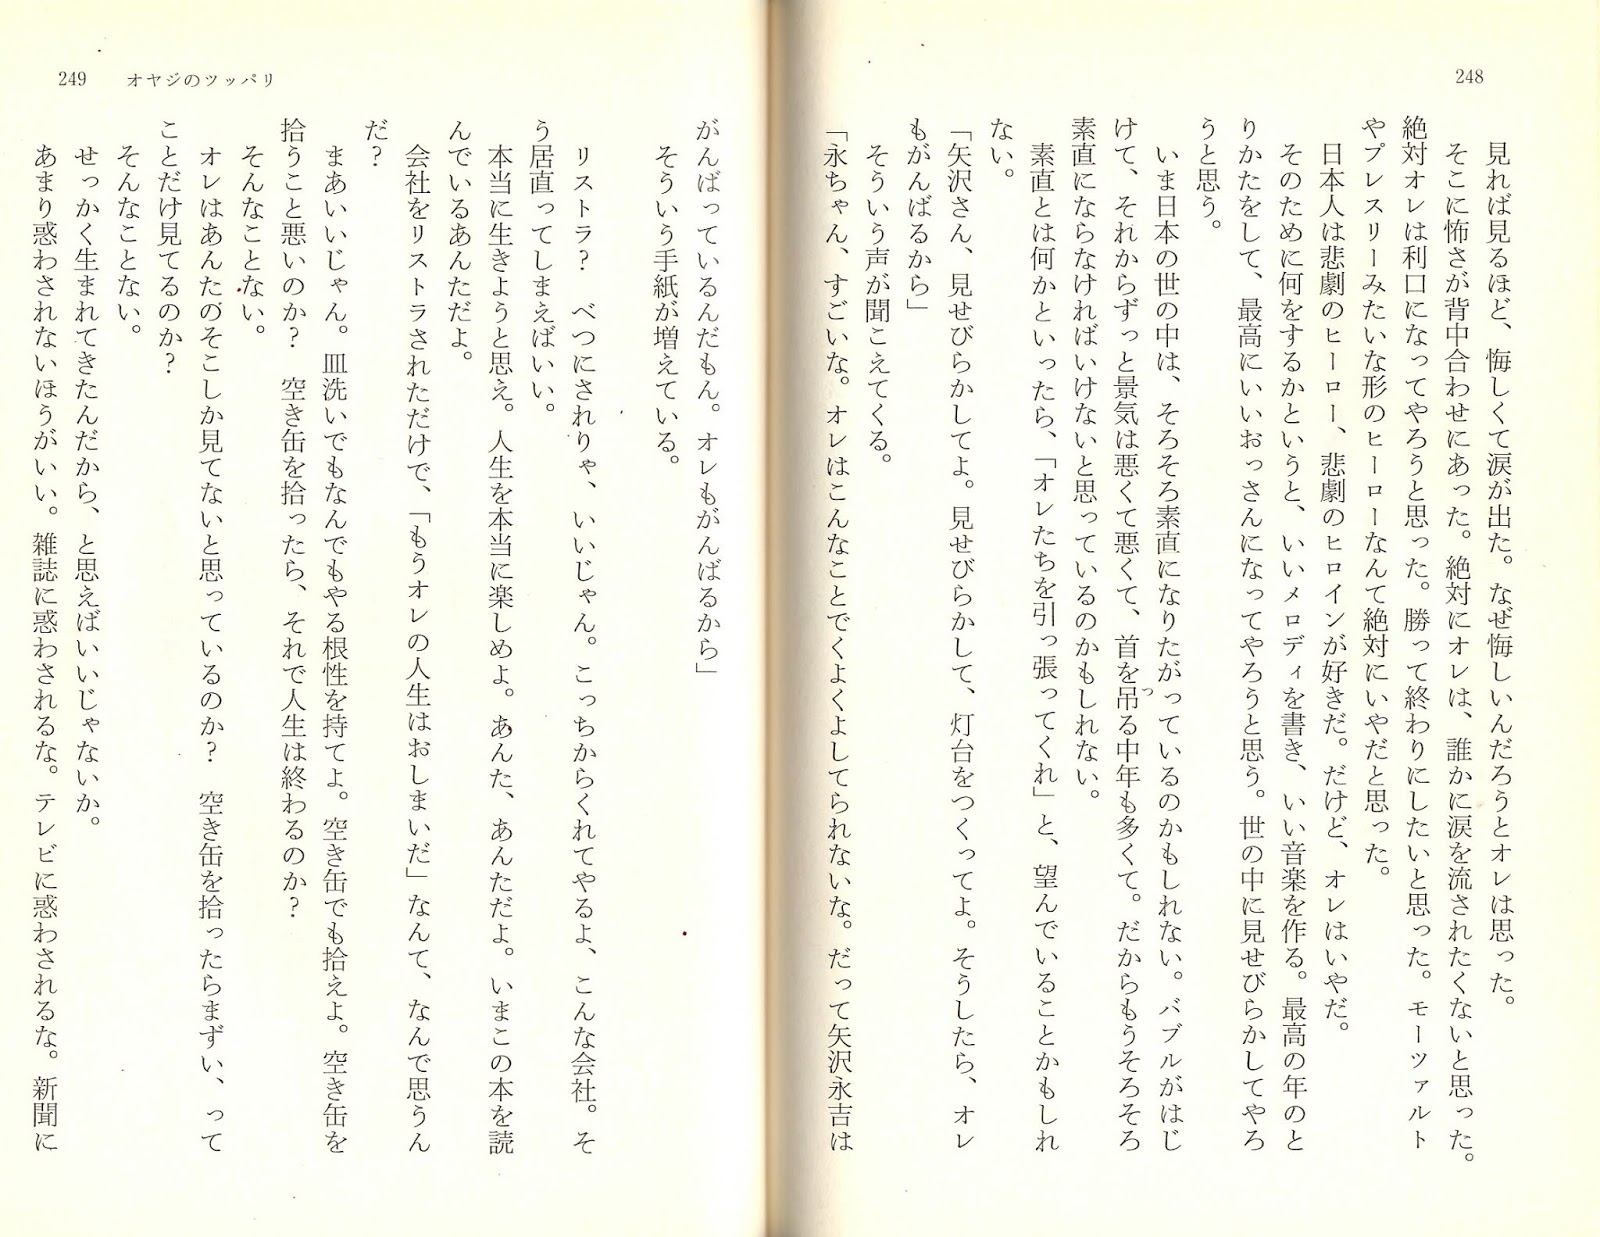 248
見れば見るほど、悔しくて涙が出た。なぜ悔しいんだろうとオレは思った。
そこに怖さが背中合わせにあった。絶対にオレは、誰かに涙を流されたくないと思った。
絶対オレは利口になってやろうと思った。勝って終わりにしたいと思った。モーツァルト
やプレスリーみたいな形のヒーローなんて絶対にいやだと思った。
日本人は悲劇のヒーロー、悲劇のヒロインが好きだ。だけど、オレはいやだ。
そのために何をするかというと、いいメロディを書き、いい音楽を作る。最高の年のと
りかたをして、最高にいいおっさんになってやろうと思う。世の中に見せびらかしてやろ
うと思う。
いま日本の世の中は、そろそろ素直になりたがっているのかもしれない。バブルがはじ
けて、それからずっと景気は悪くて悪くて、首を吊る中年も多くて。だからもうそろそろ
素直にならなければいけないと思っているのかもしれない。
素直とは何かといったら、「オレたちを引っ張ってくれ」と、望んでいることかもしれ
ない。
「矢沢さん、見せびらかしてよ。見せびらかして、灯台をつくってよ。そうしたら、オレ
もがんばるから」
そういう声が聞こえてくる。
「永ちゃん、すごいな。オレはこんなことでくよくよしてられないな。だって矢沢永吉は
249 オヤジのツッパリ
がんばっているんだもん。オレもがんばるから」
そういう手紙が増えている。
リストラ？　べつにされりゃ、いいじゃん。こっちからくれてやるよ、こんな会社。そ
う居直ってしまえばいい。
本当に生きようと思え。人生を本当に楽しめよ。あんた、あんただよ。いまこの本を読
んでいるあんただよ。
会社をリストラされただけで、「もうオレの人生はおしまいだ」なんて、なんで思うん
だ？
まあいいじゃん。皿洗いでもなんでもやる根性を持てよ。空き缶でも拾えよ。空き缶を
拾うこと悪いのか？　空き缶を拾ったら、それで人生は終わるのか？
そんなことない。
オレはあんたのそこしか見てないと思っているのか？　空き缶を拾ったらまずい、って
ことだけ見てるのか？
そんなことない。
せっかく生まれてきたんだから、と思えばいいじゃないか。
あまり惑わされないほうがいい。雑誌に惑わされるな。テレビに惑わされるな。新聞に